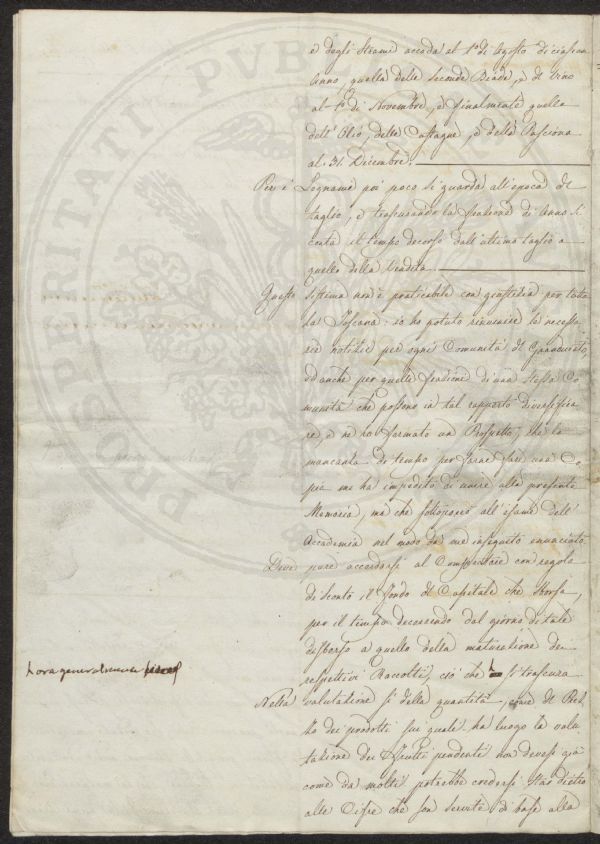 e degli Strami accada al 1º di Agosto di ciascun
Anno, quella delle Seconde Biade, e di Vino
al 1º di Novembre, e finalmente quella
dell'Olio, delle Castagne, e della Pasciona
al 31. Decembre.
Per i Legnami poi poco si guarda all'epoca del
taglio, e trascurando la frazione di Anno si
conta il tempo decorso dall'ultimo taglio a
quello della Vendita.
Questo Sistema non è praticabile con giustizia per tutta
la Toscana: io ho potuto rinvenire le necessa
rie notizie per ogni Comunità del Granducato,
ed anche per quelle frazioni di una stessa Co
munità che possono in tal rapporto diversifica
re, e ne ho formato un Prospetto, che la
mancanza di tempo per farne fare una Co
pia me ha impedito di unire alla presente
Memoria, ma che sottoporrò all'esame dell'
Accademia nel modo da me in seguito enunciato.
Deve pure accordarsi al Compratore con regola
di Sconto il fondo del Capitale che sborsa,
per il tempo decorrendo dal giorno di tale
disborso a quello della maturazione dei
respettivi Raccolti, ciò che si trascura
h ora generalmente
Nella valutazione sì della quantità, come del Prez
zo dei prodotti sui quali ha luogo la valu
tazione dei Frutti pendenti non devesi già
come da molti potrebbe credersi star dietro
alle Cifre che son servite di base alla
PROSPERITATI PVB